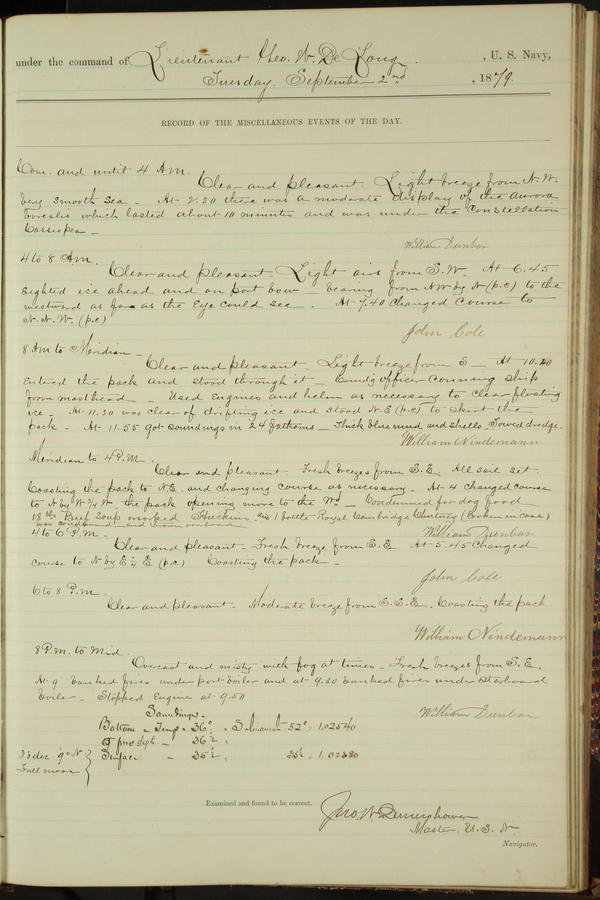 under the command of Lieutenant Geo. W. De Long, U. S. Navy,
Tuesday, September 2nd, 1879.
RECORD OF THE MISCELLANEOUS EVENTS OF THE DAY.
Com. and until 4 A.M.
Clear and pleasant. Light breeze from N.W.
Very smooth sea. At 2.30 there was a moderate display of the Aurora
Borealis which lasted about 10 minutes and was under the Constellation
Cassiopea
William Dunbar
4 to 8 A.M.
Clear and pleasant. Light airs from S.W. At 6.45
sighted ice ahead and on port bow bearing from NW by N (p.c) to the
westward as far as the Eye could see. At 7.40 changed course to
N.N.W. (p.c)
John Cole
8 AM to Meridian
Clear and pleasant Light breeze from S At 10.40
Entered the pack and stood through it officer Conning ship
from masthead Used Engines and helm as necessary to clear floating
ice At 11.30 was clear of drifting ice and stood N.E (p.c) to skirt the
pack. At 11.55 got soundings in 24 fathoms Thick blue mud and shells. Towed dredge.
William Nindemann
Meridian to 4 P.M.
Clear and pleasant Fresh breezes from S.E. All sail set.
Coasting the pack to N.E. and changing course as necessary. At 4 changed course
to N by W 1/4 W. the pack opening more to the Wd Condemned for dog food
18 lbs Beef Soup marked Huckins and 1 bottle Royal Cambridge Chutney (Broken in case)
was condemned and thrown overboard
William Dunbar
4 to 6 P.M.
Clear and pleasant Fresh breeze from S.E. At 5.45 changed
course to N by E 1/4 E (p.c.) Coasting the pack
John Cole
6 to 8 P.M.
Clear and pleasant Moderate breeze from S.S.E. Coasting the pack
William Nindemann
8 P.M. to Mid.
Overcast and misty with fog at times Fresh breezes from S.E.
At 9 banked fires under port boiler and at 9.30 banked fires under starboard
boiler Stopped Engines at 9.50
William Dunbar
Soundings
Bottom Temp. 36° 52° 1.02540
5 36 1/2
D's dec 9° N Surface 35 1/2
Full moon
Examined and found to be correct.
Jno. W. Danenhower
Master, U.S.N.
Navigator.